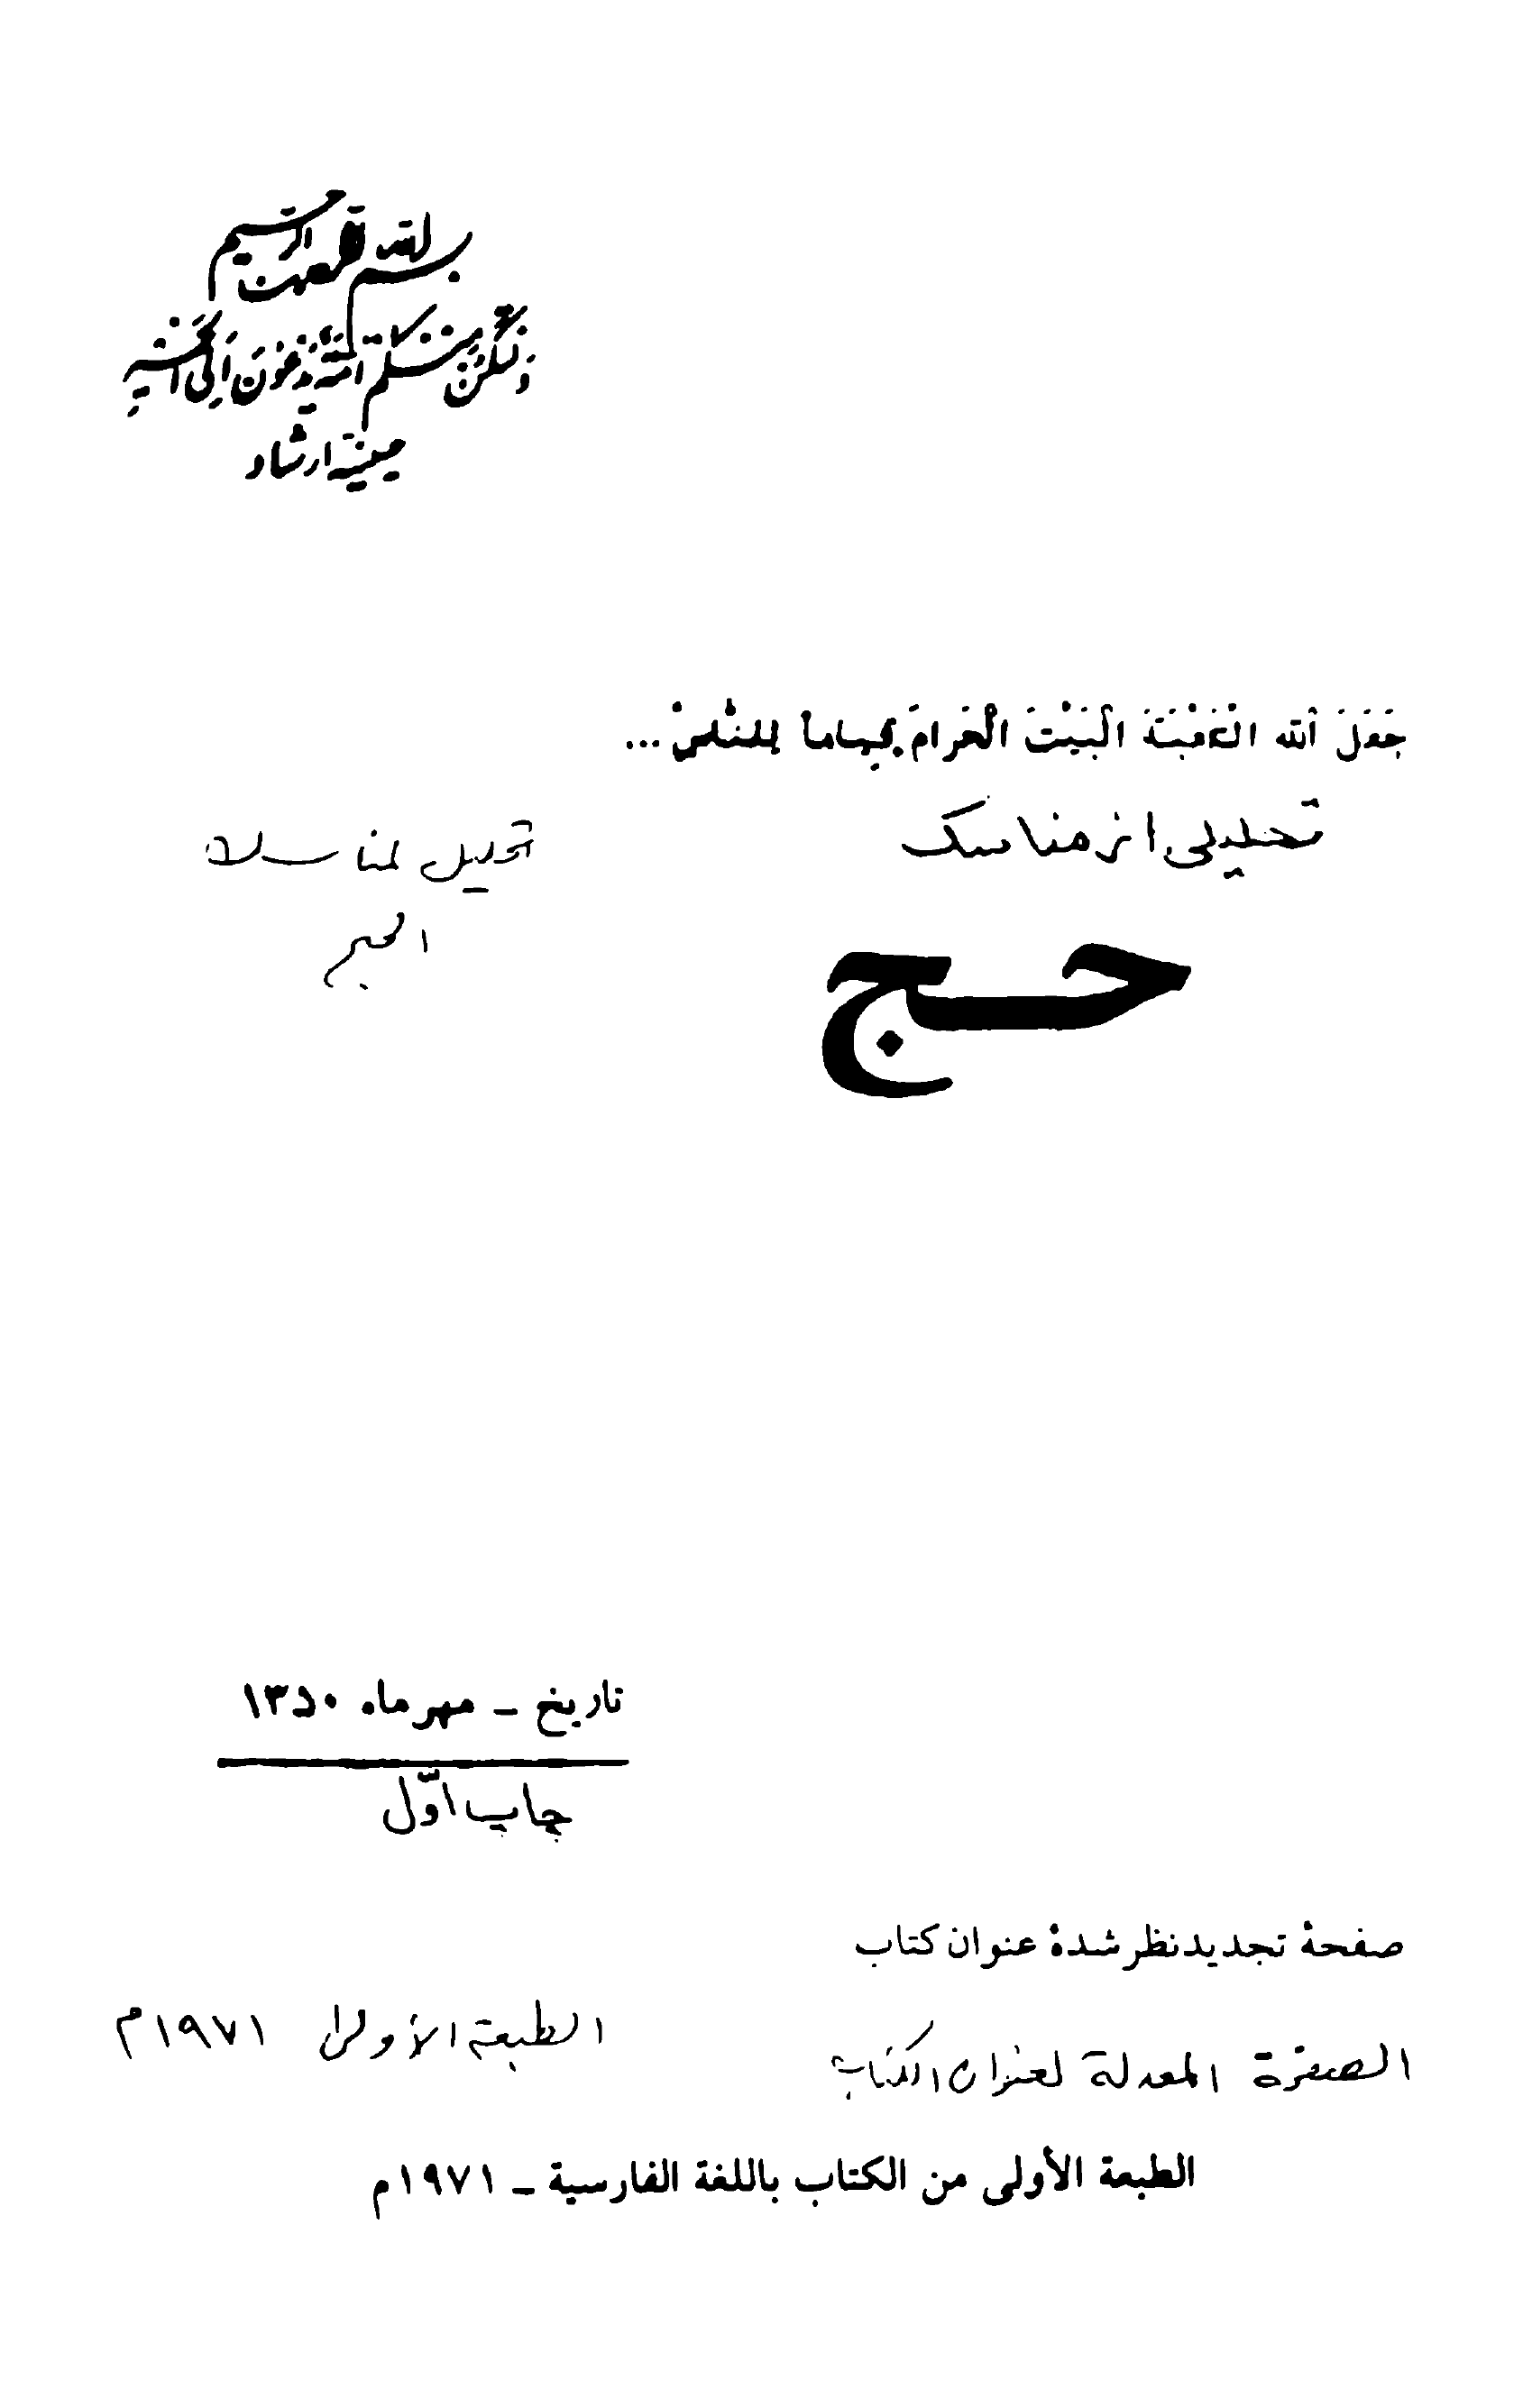 بسم الله الرحمن الرحيم
وَلْتَكُنْ مِنْكُمْ أُمَّةٌ يَدْعُونَ إِلَى الْخَيْرِ
حسینیه ارشاد
جَعَلَ ٱللّه الْكَعْبَةَ الْبَيْتَ الْحَرامَ قِياماً لِلنّٰاسْ ...
تحلیلی از مناسک
تحليل لمناسك
حج
الحج
تاریخ – مهرماه ۱۳۵۰
چاپ اوّل
صفحهٔ تجدیدنظر شدهٔ عنوان کتاب
الطبعة الأولى ١٩٧١م
الصفحة المعدلة لعنوان الكتاب
الطبعة الأولى من الكتاب باللغة الفارسية – ١٩٧١م